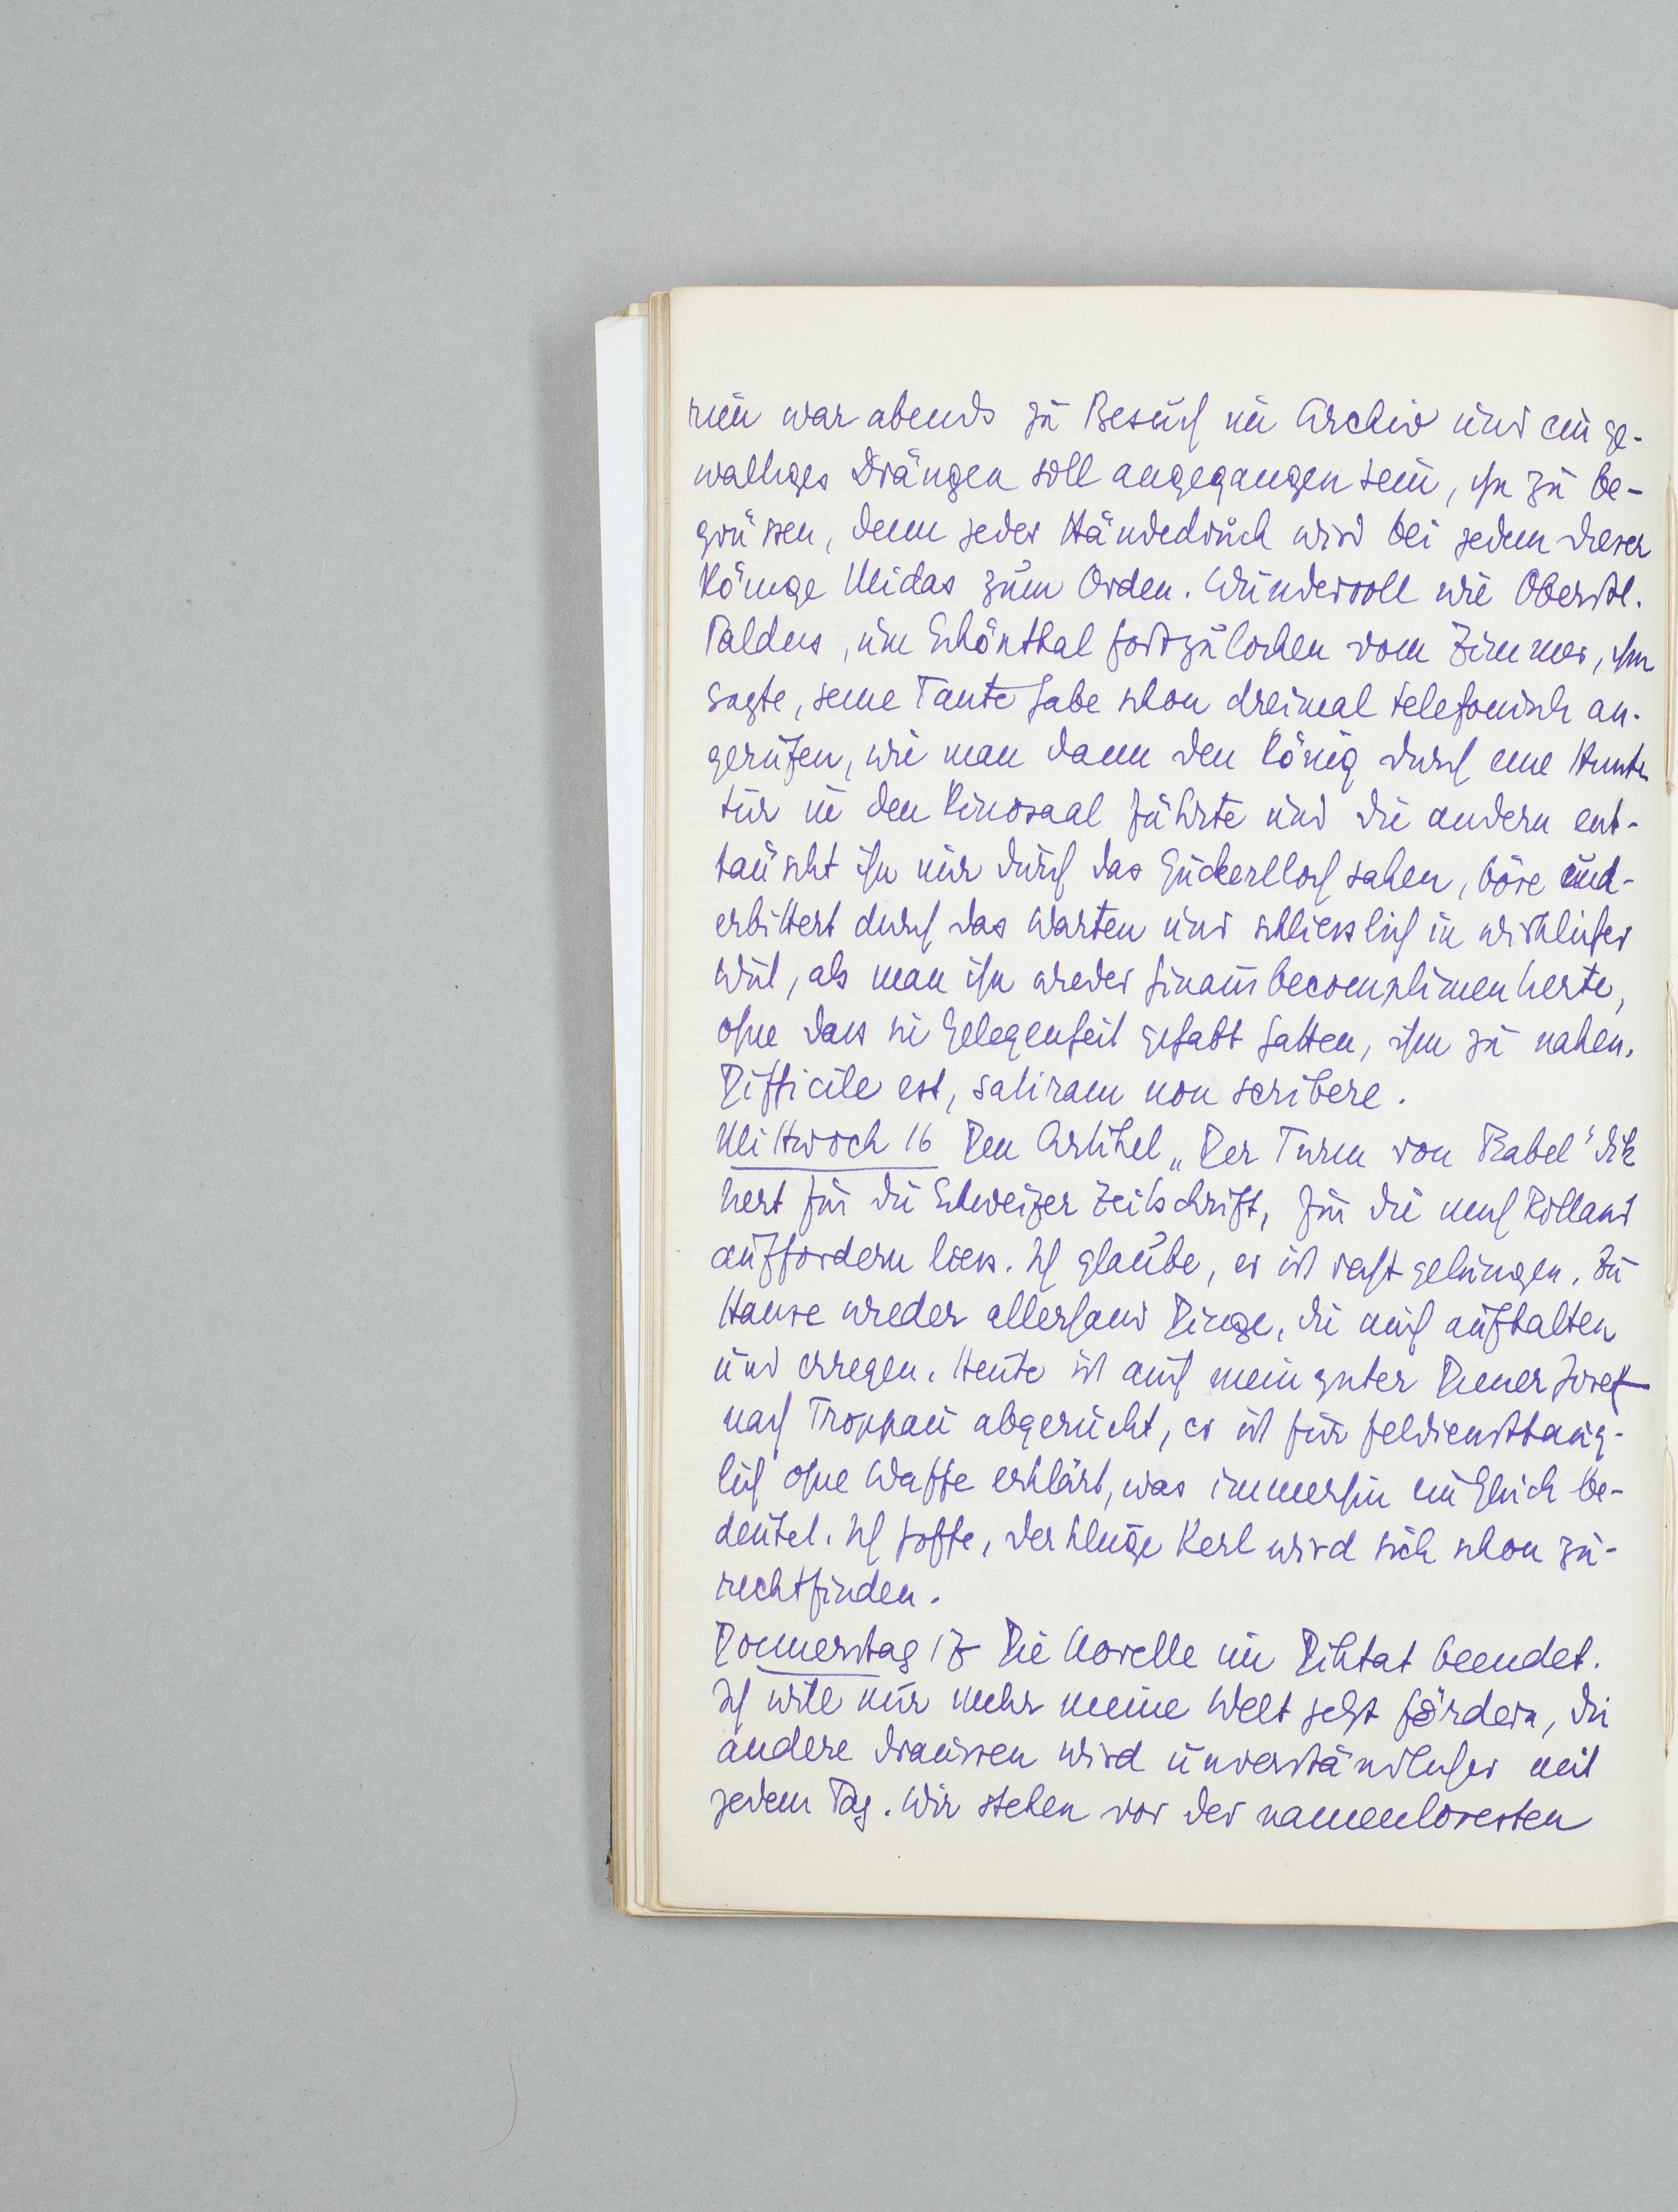 rien war abends zu Besuch im Archiv und ein ge-
waltiges Drängen soll angegangen sein, ihn zu be-
grüssen, denn jeder Händedruck wird bei jedem dieser
Könige Midas zum Orden. Wundervoll wie Oberstl.
Baldus, um Schönthal fortzulocken vom Zimmer, ihm
sagte, seine Tante habe schon dreimal telefonisch an-
gerufen, wie man dann den König durch eine Hinter
tür in den Kinosaal führte und die andern ent-
täuscht ihn nur durch das Guckerlloch sahen, böse und-
erbittert durch das Warten und schliesslich in wirklicher
Wut, als man ihn wieder hinausbecomplimentierte,
ohne dass sie Gelegenheit gehabt hatten, ihm zu nahen.
Difficile est, satiram non scribere.
Mittwoch 16 Den Artikel „Der Turm von Babel" dik
tiert für die Schweizer Zeitschrift, für die mich Rolland
auffordern liess. Ich glaube, er ist recht gelungen. Zu
Hause wieder allerhand Dinge, die mich aufhalten
und erregen. Heute ist auch mein guter Diener Josef
nach Troppau abgerückt, er ist für felddiensttaug-
lich ohne Waffe erklärt, was immerhin ein Glück be-
deutet. Ich hoffe, der kluge Kerl wird sich schon zu-
rechtfinden.
Donnerstag 17 Die Novelle im Diktat beendet.
Ich will nur mehr meine Welt jetzt fördern, die
andere draussen wird unverständlicher mit
jedem Tag. Wir stehen vor der namenlosesten